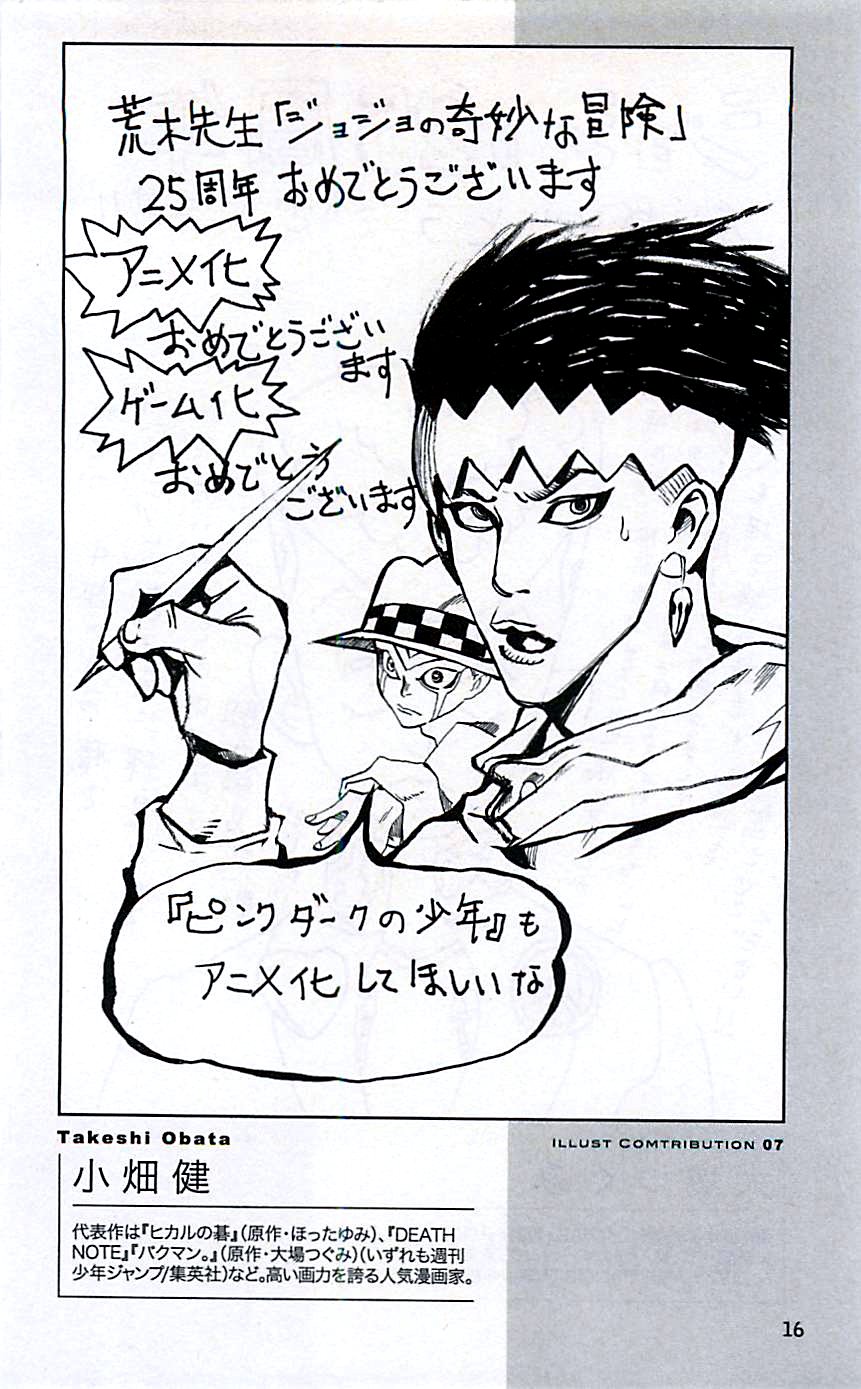 荒木先生「ジョジョの奇妙な冒険」
25周年 おめでとうございます
アニメ化
おめでとうござい
ます
ゲーム化
おめでとう
ございます
『ピンクダークの少年』も
アニメ化してほしいな
Takeshi Obata
ILLUST COMTRIBUTION 07
小畑 健
代表作は『ヒカルの碁』(原作・ほったゆみ)、『DEATH
NOTE』『バクマン。』(原作・大場つぐみ)(いずれも週刊
少年ジャンプ/集英社)など。高い画力を誇る人気漫画家。
16